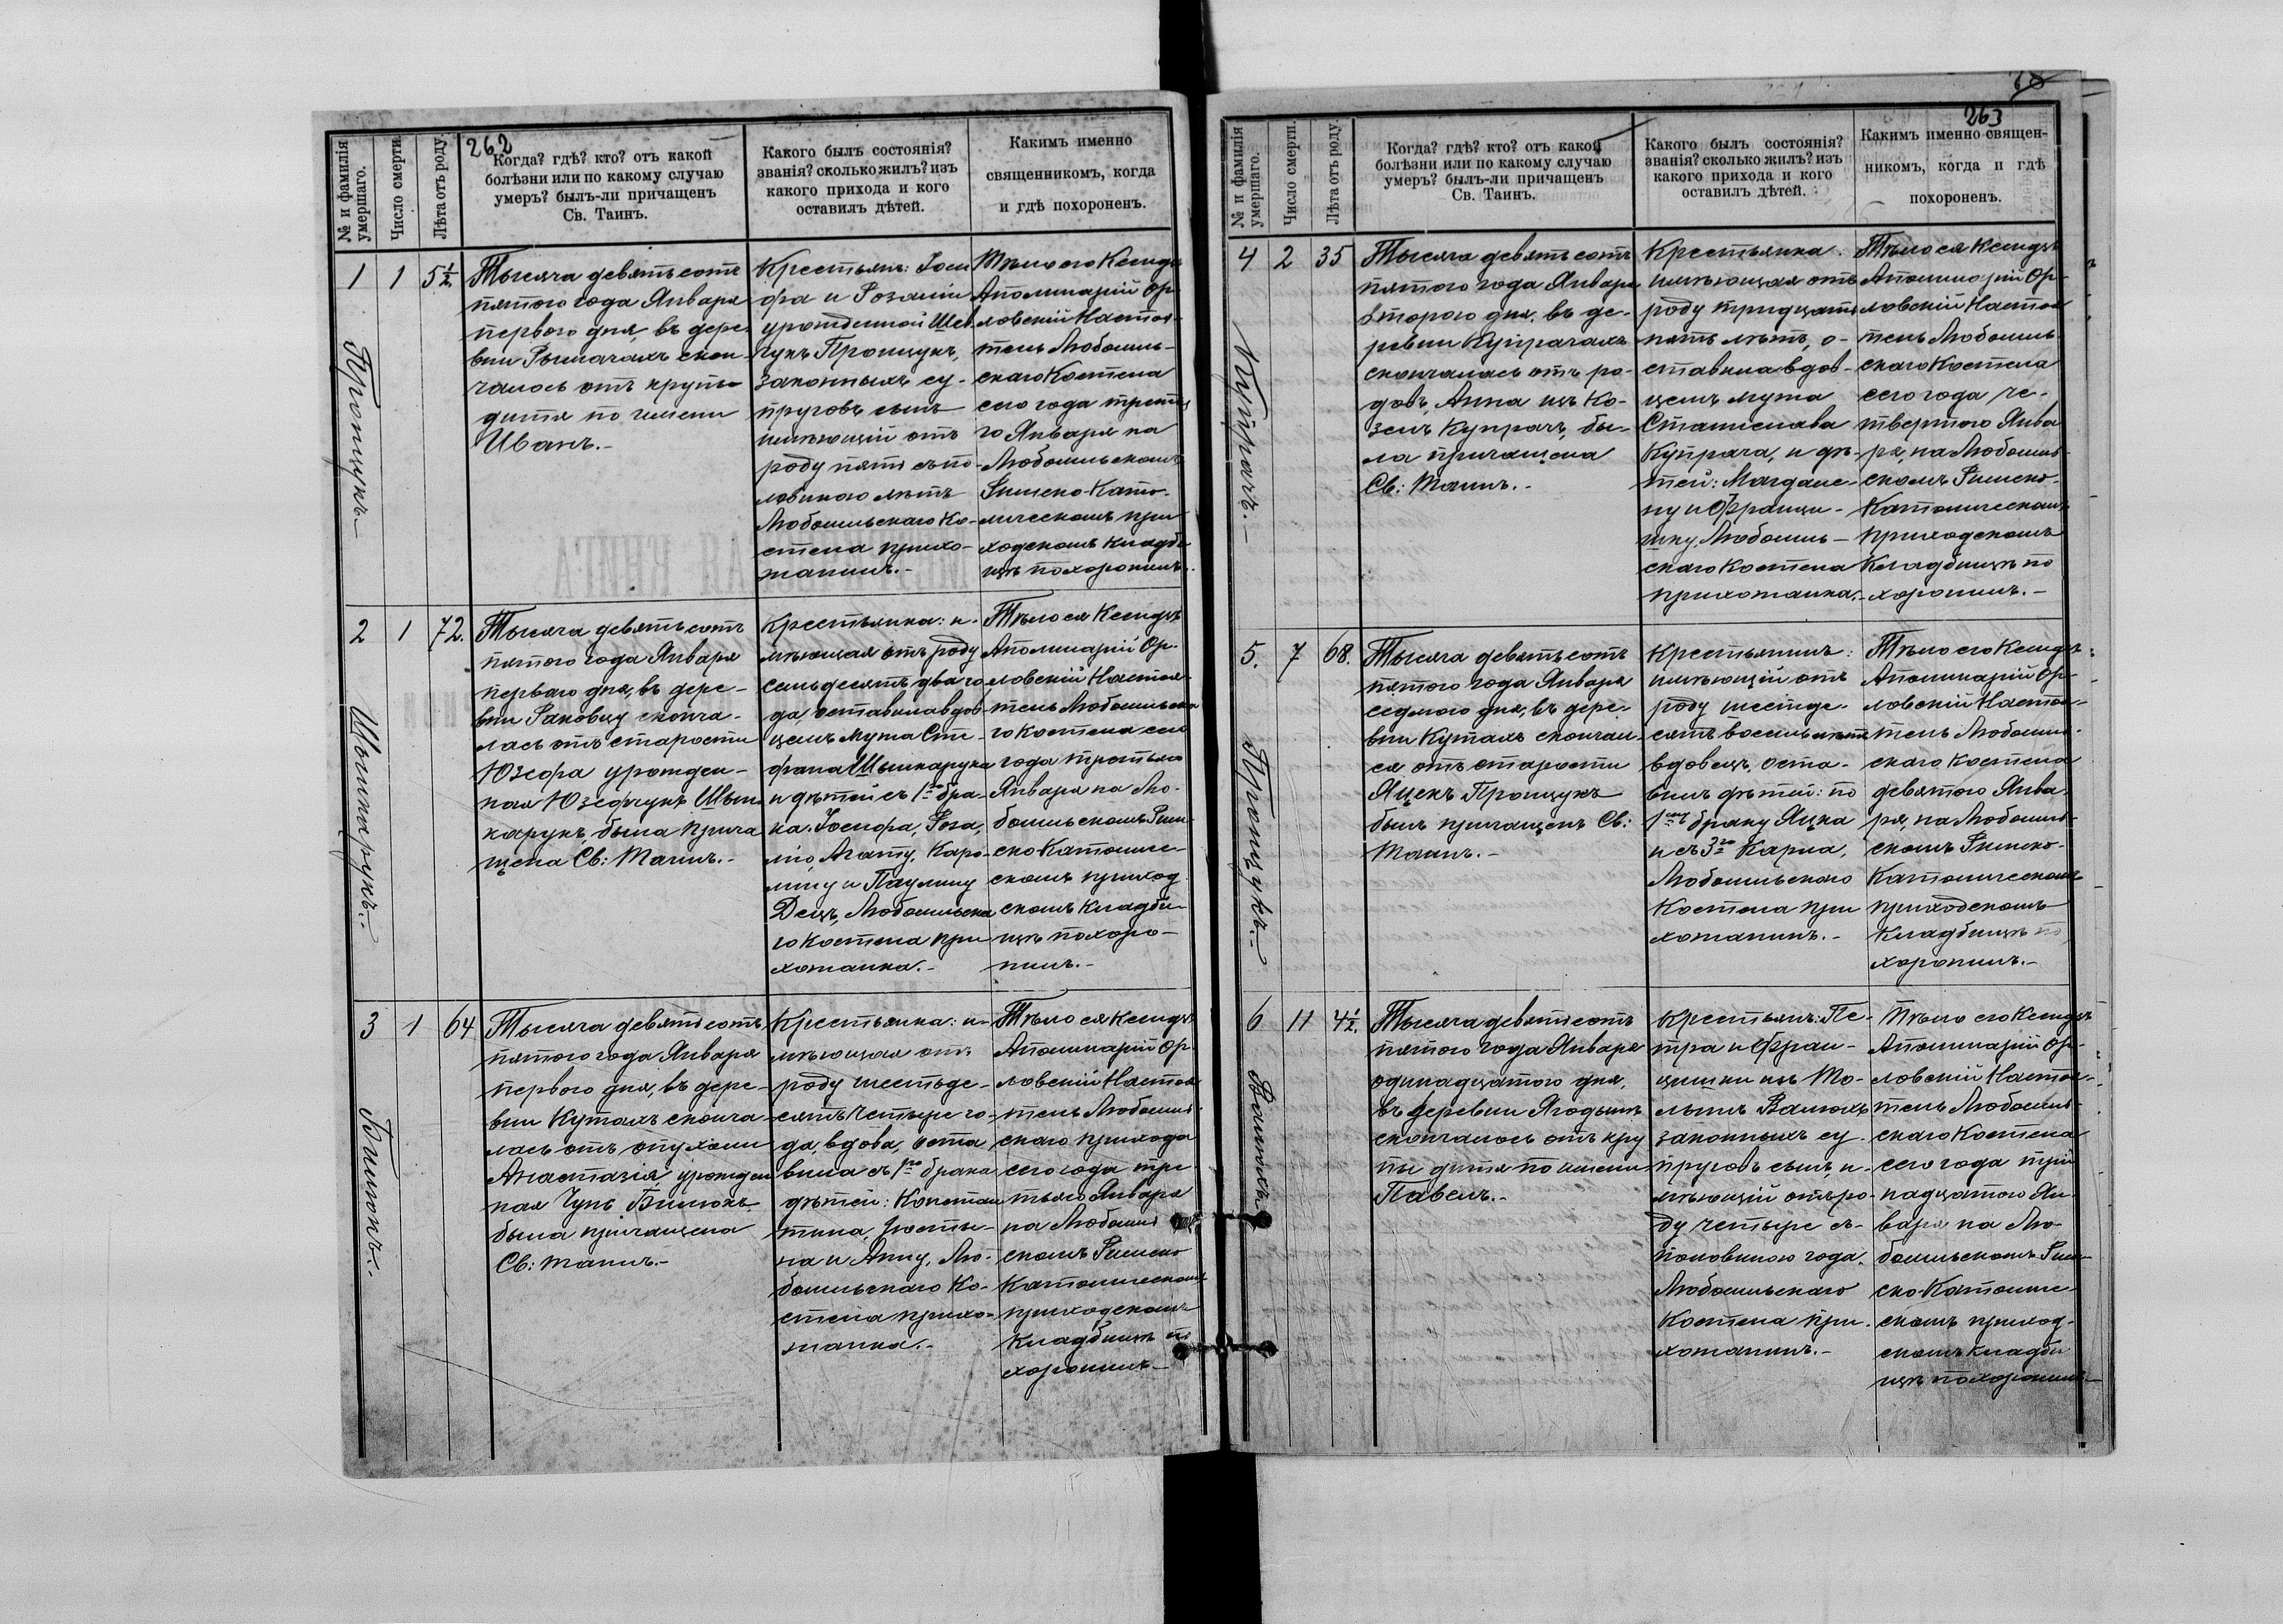 262
№ и фамилія умершаго.
Число смерти.
Лѣта отъ роду.
Когда? гдѣ? кто? отъ какой
болѣзни или по какому случаю
умеръ? былъ-ли причащенъ
Св. Таинъ.
Какого былъ состоянія?
званія? сколько жилъ? изъ
какого прихода и кого
оставилъ дѣтей.
Какимъ именно
священникомъ, когда
и гдѣ похороненъ.
1
Пронцукъ.
1
5½
Тысяча девятьсотъ
пятого года Января
первого дня, въ дере-
вни Рымачахъ скон-
чалось отъ крупы
дитя по имени
Иванъ.-
Крестьянъ: Іоси
фа и Розаліи
урожденной Шев
чукъ Пронцукъ,
законныхъ су-
пруговъ сынъ
имѣющій отъ
роду пять съ по-
ловиною лѣтъ
Любомльскаго Ко-
стела прихо-
жанинъ.-
Тѣло его Ксендзъ
Аполинарій Ор-
ловскій Настоя-
тель Любомль-
скаго Костела
сего года третья
го Января на
Любомльскомъ
Римско-Като-
лическомъ при
ходскомъ кладби
щѣ похоронилъ.
2
Шышкарукъ.
1
72.
Тысяча девятьсотъ
пятого года Января
перваго дня, въ дере-
вни Раковцу сконча-
лась отъ старости
Юзефа урожден-
ная Юзефчукъ Шыш
карукъ, была прича
щена Св: Таинъ.-
Крестьянка: и-
мѣющая отъ роду
семьдесятъ два го
да, оставила вдов-
цемъ мужа Сте-
фана Шышкарука
и дѣтей съ 1го бра-
ка: Іосифа, Роза-
лію, Агату, Каро-
лину и Паулину
Децъ, Любомльска
го Костела при
хожанка.-
Тѣло ея Ксендзъ
Аполинарій Ор-
ловскій Настоя-
тель Любомльска
го Костела сего
года третьяго
Января на Лю-
бомльскомъ Рим-
ско Католиче-
скомъ приход
скомъ Кладби-
щѣ похоро-
нилъ.-
3
Билюкъ.
1
64
Тысяча девятьсотъ
пятого года Января
первого дня, въ дере-
вни Кутахъ сконча-
лась отъ опухоли
Анастазія урожден
ная Чунь Билюкъ,
была причащена
Св: таинъ.-
Крестьянка: и-
мѣющая отъ
роду шестьде-
сятъ четыре го-
да, вдова, оста
вила съ 1го брака
дѣтей: Констан
тина, Юсты-
на и Анну, Лю-
бомльскаго Ко-
стела прихо-
жанка.-
Тѣло ея Ксендзъ
Аполинарій Ор-
ловскій Настоя
тель Любомль-
скаго прихода
сего года тре
тьяго Января
на Любомль
скомъ Римско
Католическомъ
приходскомъ
Кладбищѣ по
хоронилъ-
263
№ и фамилія умершаго.
Число смерти.
Лѣта отъ роду.
Когда? гдѣ? кто? отъ какой
болѣзни или по какому случаю
умеръ? былъ-ли причащенъ
Св. Таинъ.
Какого былъ состоянія?
званія? сколько жилъ? изъ
какого прихода и кого
оставилъ дѣтей.
Какимъ именно священ-
никомъ, когда и гдѣ
похороненъ.
4
Купрачъ.
2
35
Тысяча девятьсотъ
пятого года Января
второго дня, въ де-
ревни Купрачахъ
скончалась отъ ро-
довъ, Анна изъ Ко-
зелъ Купрачъ, бы-
ла причащена
Св: Таинъ.-
Крестьянка:
имѣющая отъ
роду тридцать
пять лѣтъ, о-
ставила вдов-
цемъ мужа
Станислава
Купрача, и дѣ-
тей: Магдале-
ну и Франци-
шку, Любомль-
скаго Костела
прихожанка.-
Тѣло ея Ксендзъ
Аполинарій Ор-
ловскій Настоя
тель Любомль
скаго Костела
сего года че-
твертого Янва
ря, на Любомль-
скомъ Римско-
Католическомъ
приходскомъ
Кладбищѣ по
хоронилъ.-
5.
Пронцукъ.
7
68.
Тысяча девятьсотъ
пятого года Января
седмого дня, въ дере-
вни Кутахъ скончал
ся отъ старости
Яцекъ Пронцукъ
былъ причащенъ Св:
Таинъ.-
Крестьянинъ:
имѣющій отъ
роду шестьде-
сятъ восемь лѣтъ
вдовецъ, оста-
вилъ дѣтей: по
1му браку Яцка
и съ 3го Карла,
Любомльского
Костела при
хожанинъ.-
Тѣло его Ксендзъ
Аполинарій Ор-
ловскій Настоя-
тель Любомль-
скаго Костела
девятого Янва-
ря, на Любомль-
скомъ Римско-
Католическомъ
приходскомъ
Кладбищѣ по
хоронилъ.-
6
Валюхъ.
11
4½
Тысяча девятьсотъ
пятого года Января
одинадцатого дня,
въ деревни Ягодынѣ
скончалось отъ кру
пы дитя по имени
Павелъ.-
Крестьянъ: Пе-
тра и Фран-
цишки изъ
Валюхъ
законныхъ су-
пруговъ сынъ, и-
мѣющій отъ ро-
ду четыре съ-
половиною года.
Любомльскаго
Костела при-
хожанинъ.-
Тѣло его Ксендзъ
Аполинарій Ор-
ловскій Настоя-
тель Любомль-
скаго Костела
сего года три
надцатого Ян-
варя на Лю-
бомльскомъ Рим-
ско-Католиче
скомъ приход-
скомъ кладби
щѣ похоронилъ-